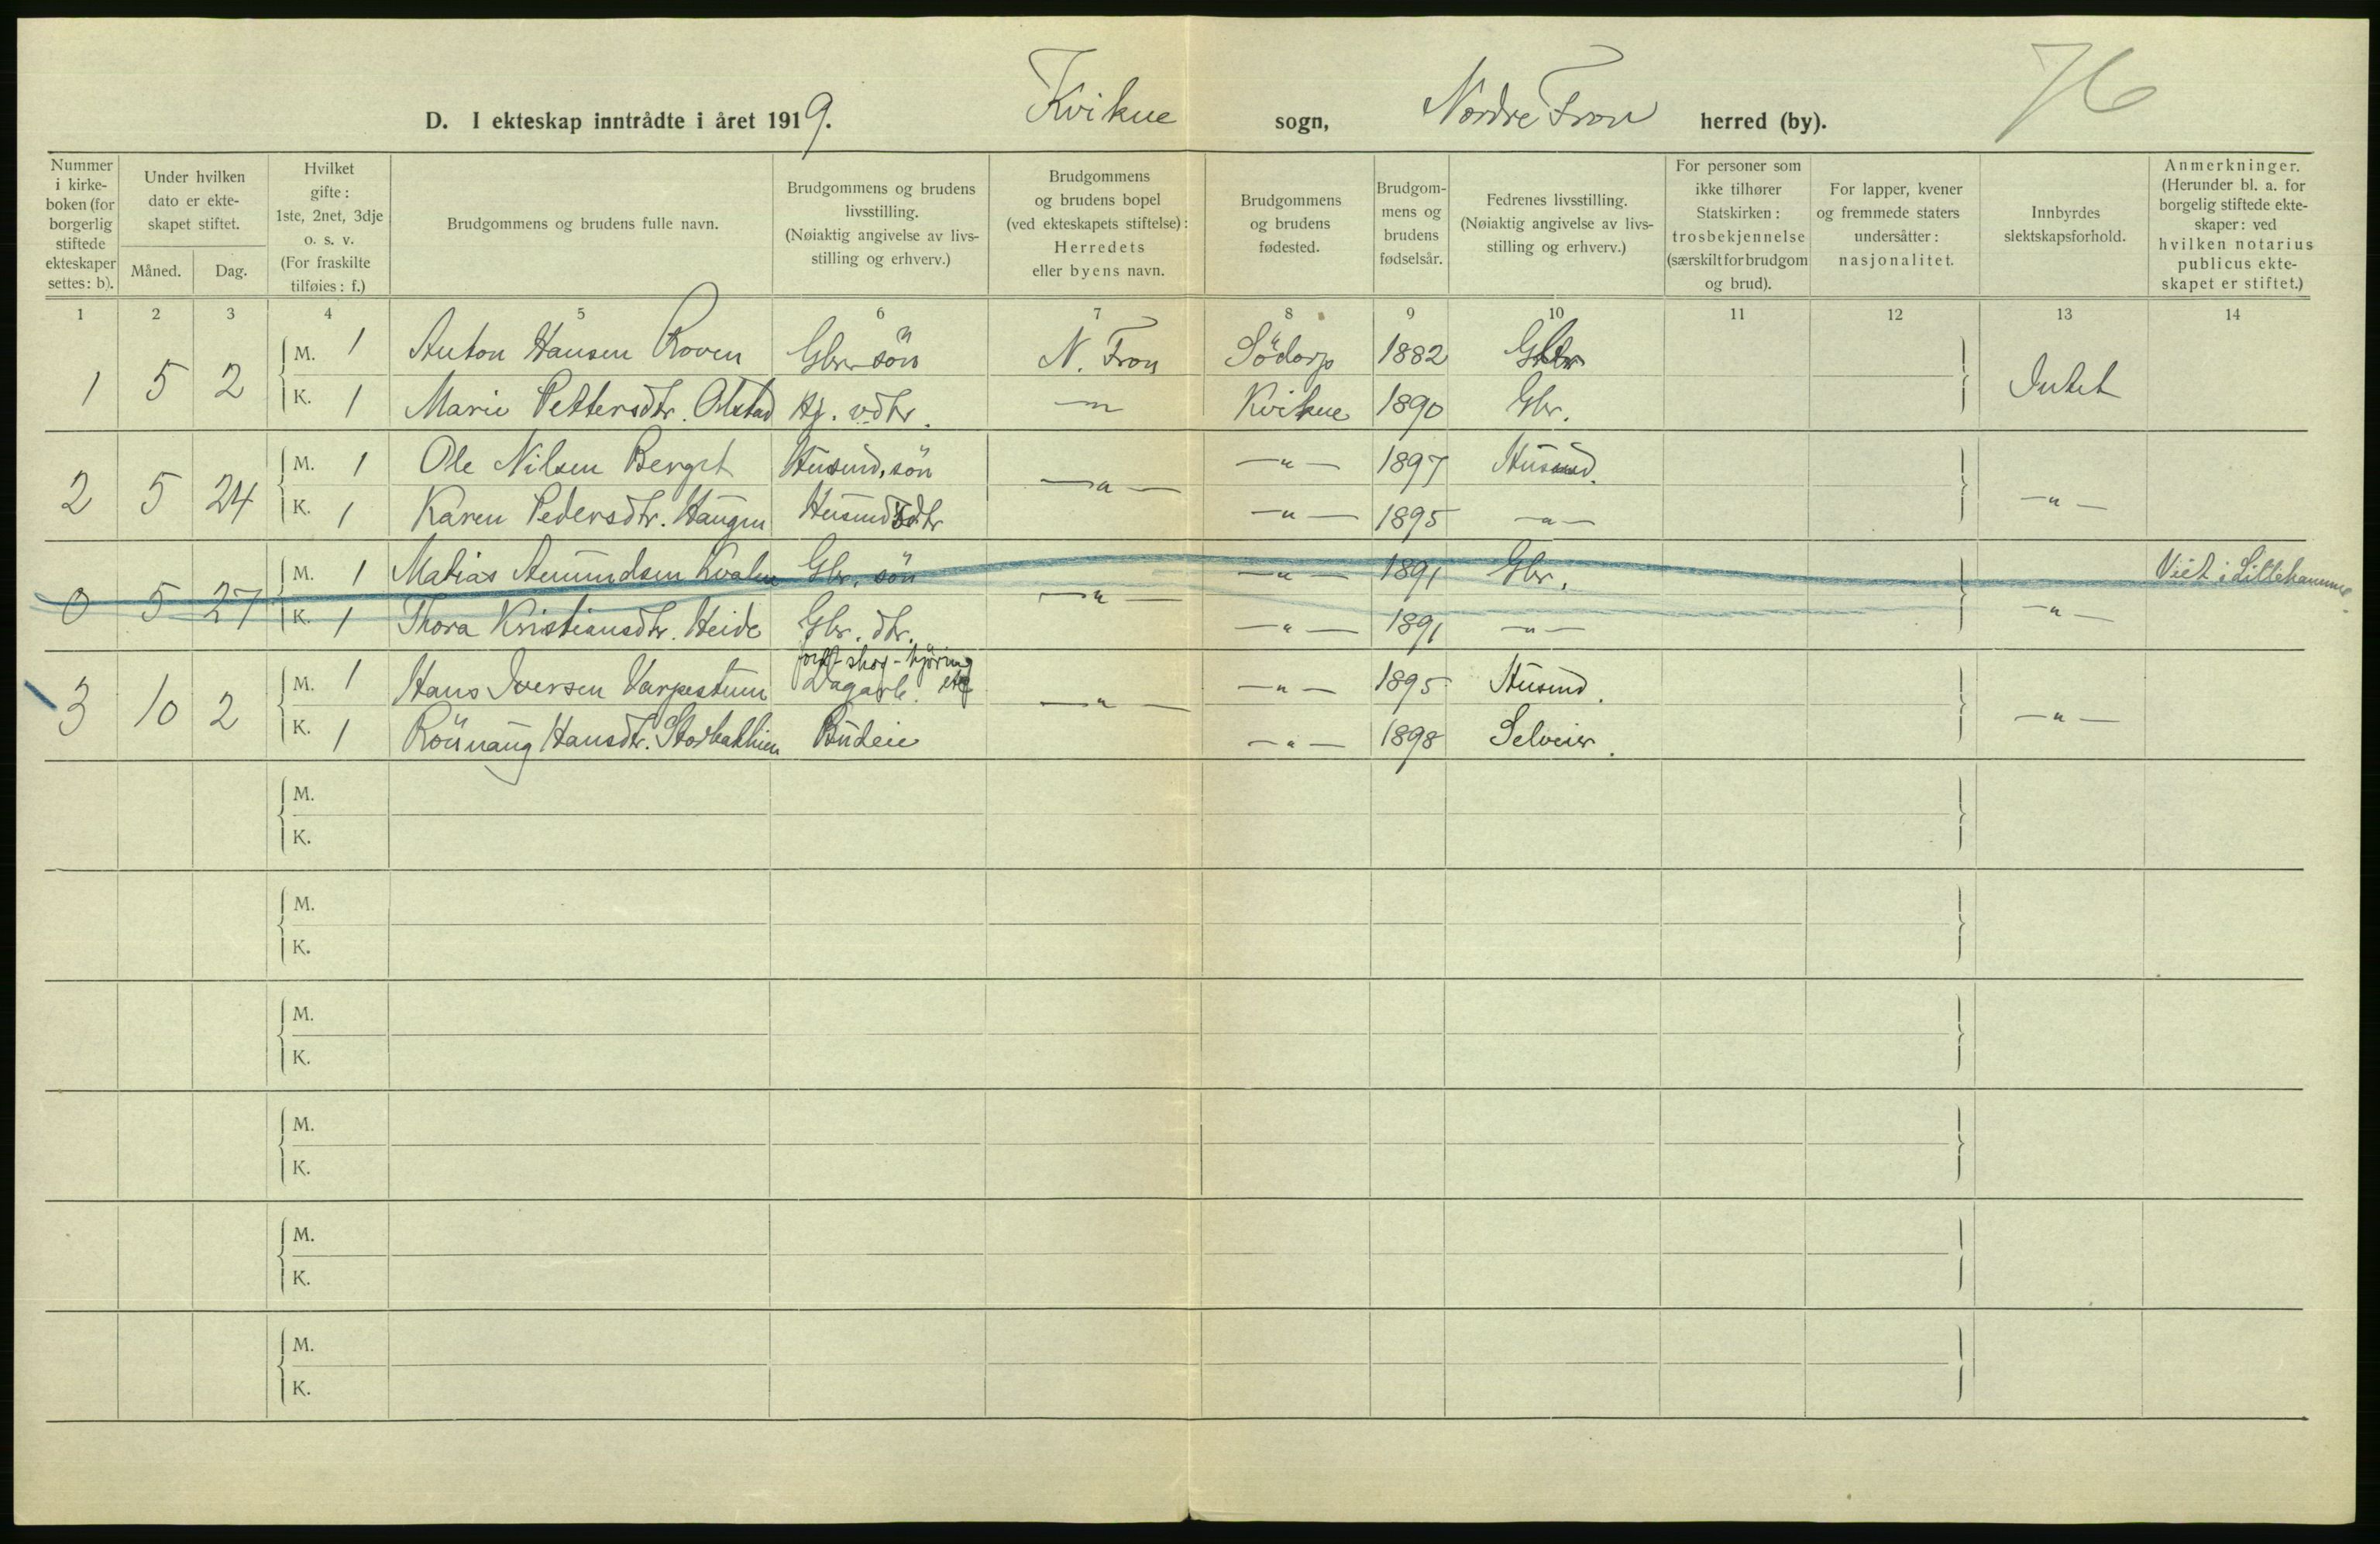 76
D. I ekteskap inntrådte i året 1919. Kvikne sogn, Nordre Fron herred (by).
Nummer i kirkeboken (for borgerlig stiftede ekteskaper settes: b).
Under hvilken dato er ekteskapet stiftet.
Måned. Dag.
Hvilket gifte: 1ste, 2net, 3dje o. s. v. (For fraskilte tilføies: f.)
Brudgommens og brudens fulle navn.
Brudgommens og brudens livsstilling. (Nøiaktig angivelse av livsstilling og erhverv.)
Brudgommens og brudens bopel (ved ekteskapets stiftelse): Herredets eller byens navn.
Brudgommens og brudens fødested.
Brudgommens og brudens fødselsår.
Fedrenes livsstilling. (Nøiaktig angivelse av livsstilling og erhverv.)
For personer som ikke tilhører Statskirken: trosbekjennelse (særskilt for brudgom og brud).
For lapper, kvener og fremmede staters undersåtter: nasjonalitet.
Innbyrdes slektskapsforhold.
Anmerkninger. (Herunder bl. a. for borgelig stiftede ekteskaper: ved hvilken notarius publicus ekteskapet er stiftet.)
1 2 3 4 5 6 7 8 9 10 11 12 13 14
1 5 2 M. 1 Anton Hansen Roven Gbr. sön N. Fron Södorp 1882 Gbr. Intet
K. 1 Marie Pettersdtr. Olstad dtr. –"– Kvikne 1890 Gbr.
2 5 24 M. 1 Ole Nilsen Berget Husmd. sön –"– –"– 1897 Husmd. –"–
K. 1 Karen Pedersdtr. Haugen Husmdsdtr –"– 1895 –"–
0 5 27 M. 1 Matias Amundsen Kvalen Gbr. sön –"– –"– 1891 Gbr. –"– Viet i Lillehammer.
K. 1 Thora Kristiansdtr. Heide Gbr. dtr. –"– 1891 –"–
3 10 2 M. 1 Hans Iversen Varpestuen Dagarb. skog-kjöring etc –"– –"– 1895 Husmd. –"–
K. 1 Rönnaug Hansdtr. Storbakken Budeie –"– 1898 Selveier.
M.
K.
M.
K.
M.
K.
M.
K.
M.
K.
M.
K.